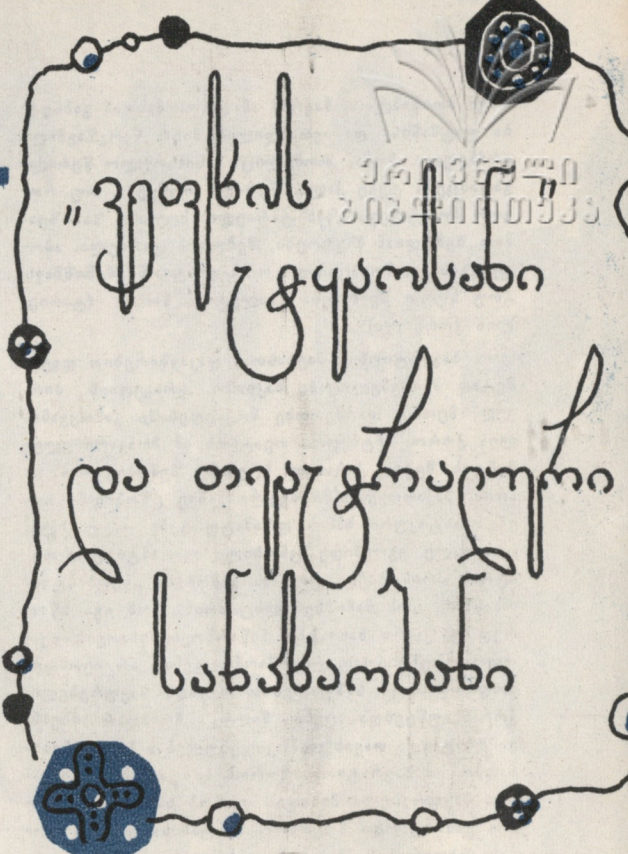 ეროვნული
ბიბლიოთეკა
"ვეფხის
ტყაოსანი"
და თეატრალური
სანახაობანი